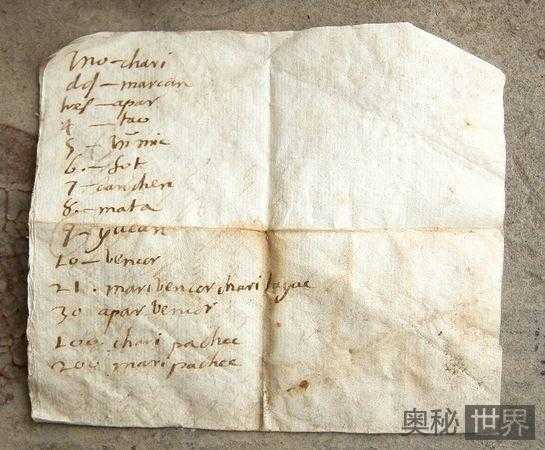 Uno – chari
dos – marian
tres – apar
4 – tau
5 – himic
6 – sut
7 – canchen
8 – mata
9 – yucan
10 – bencor
21. maribencor chari tayac
30 apar bencor
100. chari pachac
200. mari pachac
奥秘世界